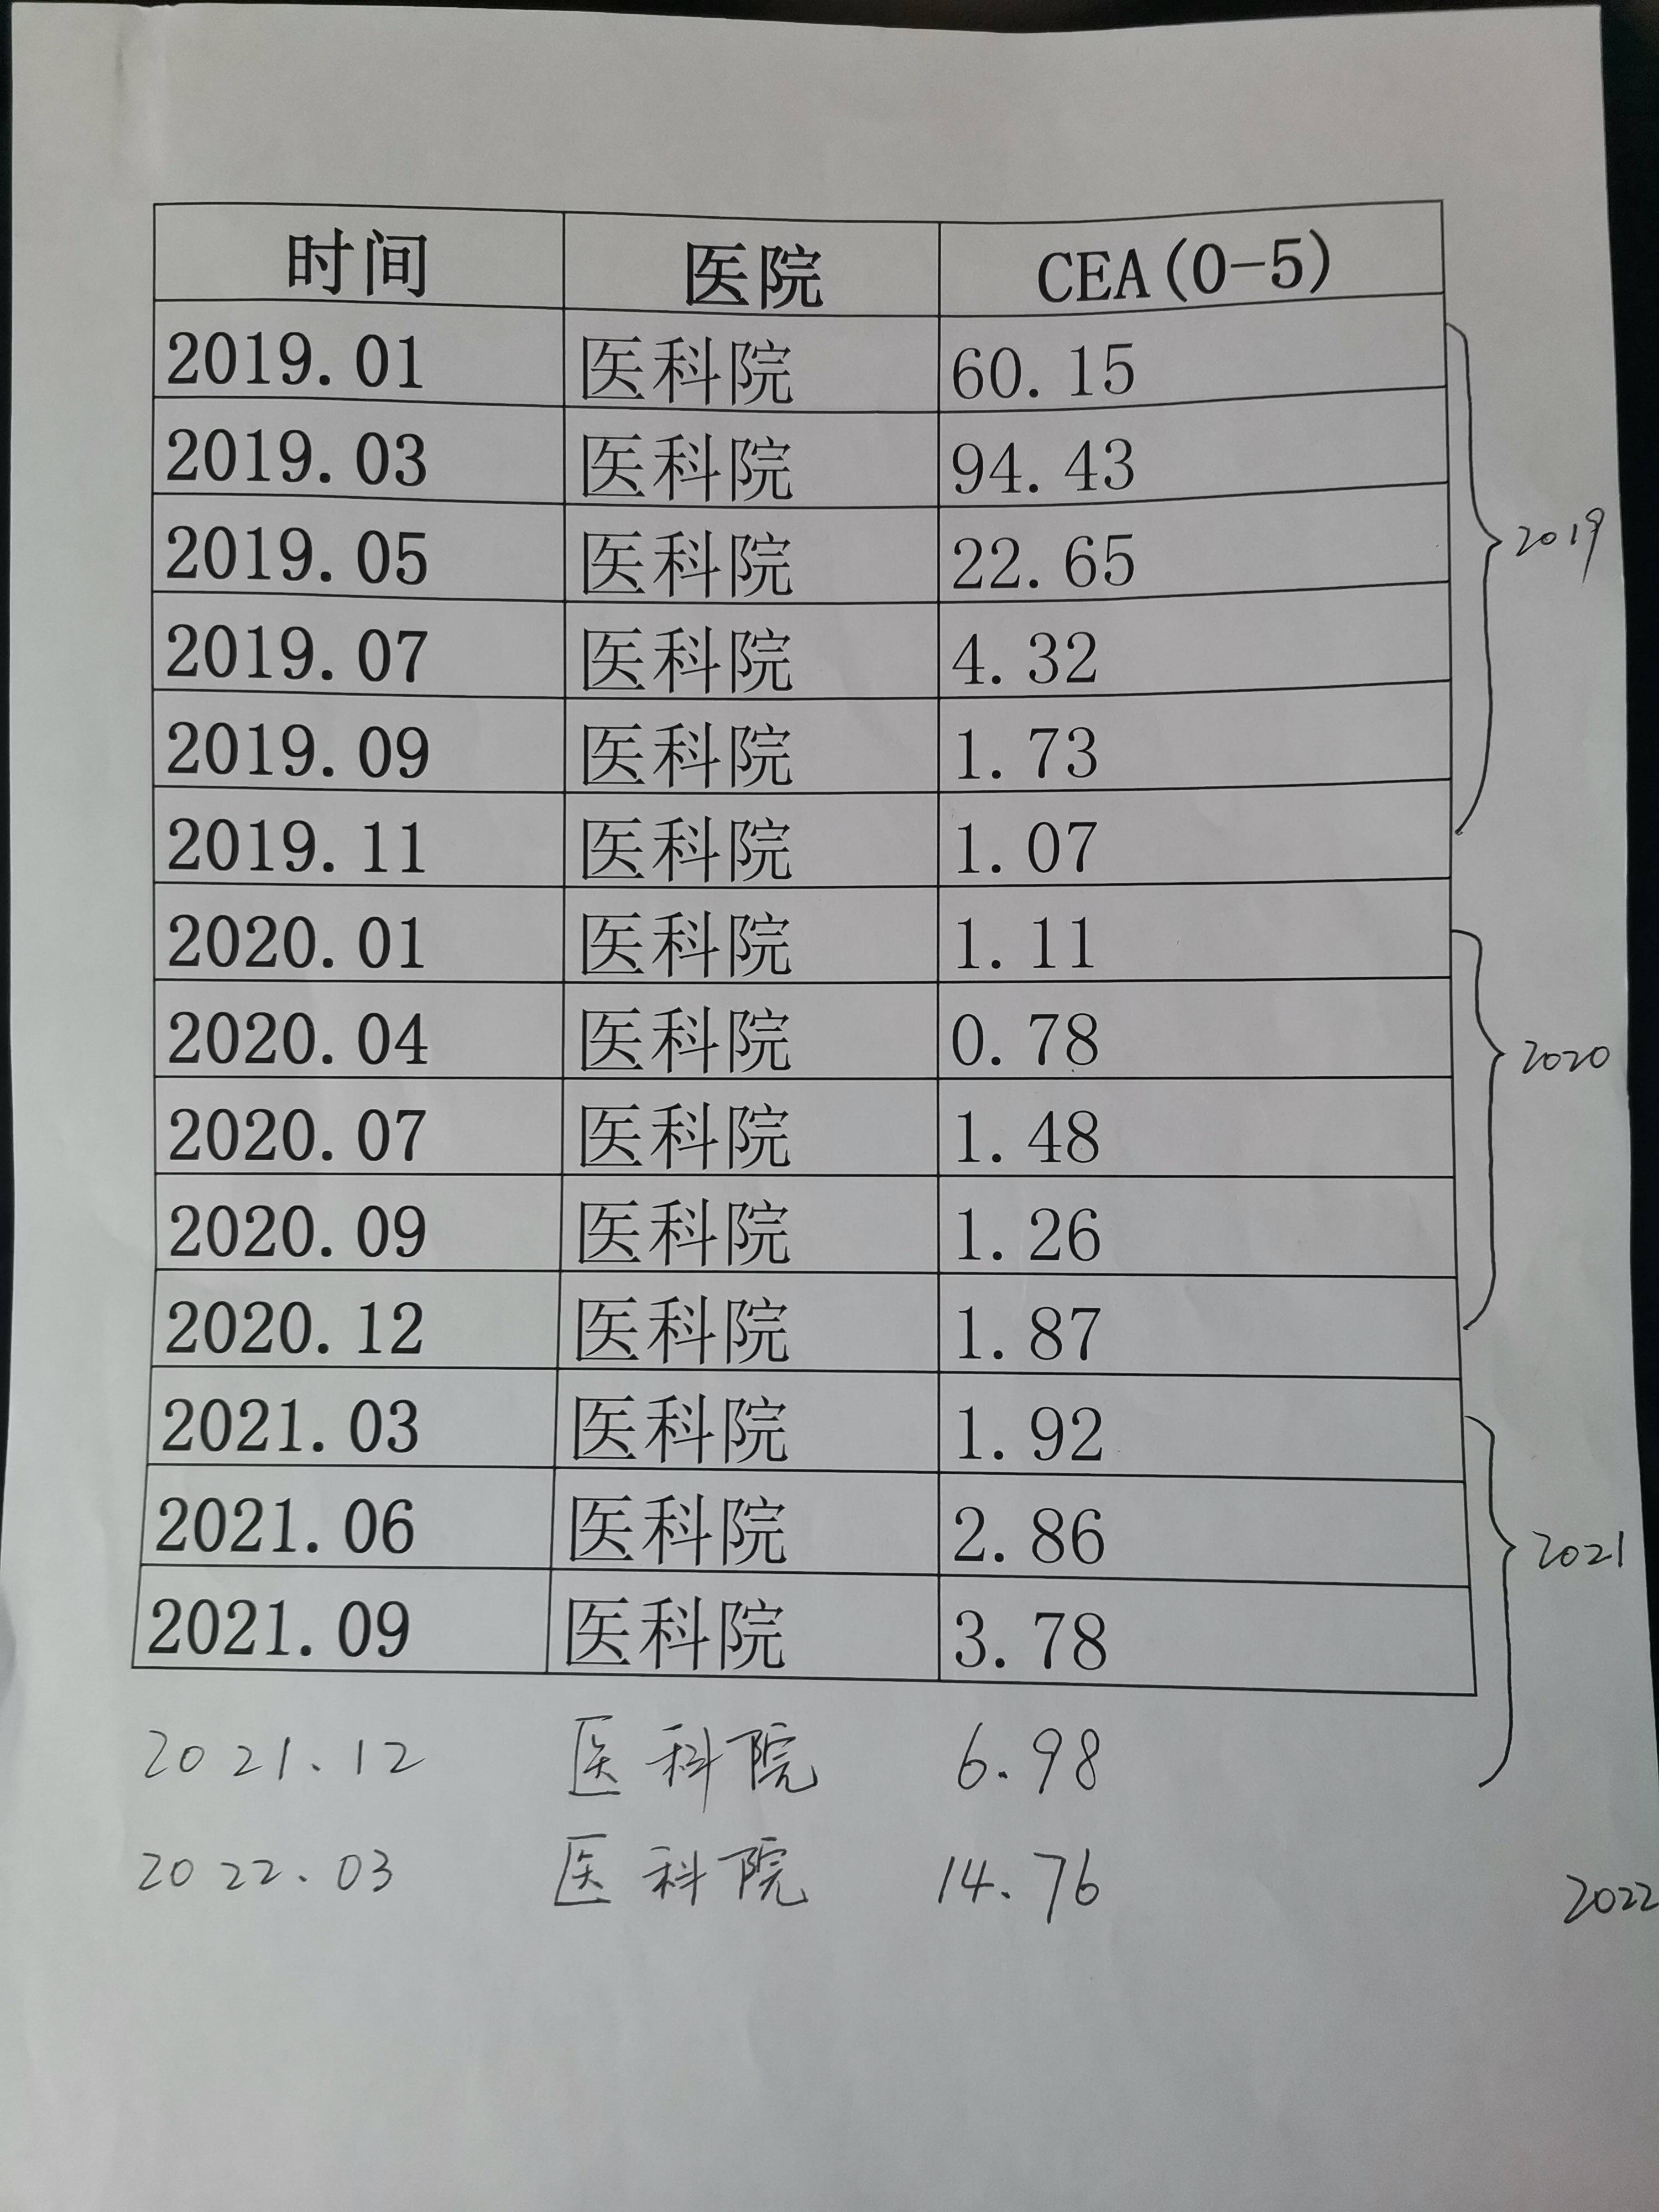 时间 医院 CEA(0-5)
2019.01 医科院 60.15
2019.03 医科院 94.43
2019.05 医科院 22.65
2019
2019.07 医科院 4.32
2019.09 医科院 1.73
2019.11 医科院 1.07
2020.01 医科院 1.11
2020.04 医科院 0.78
2020
2020.07 医科院 1.48
2020.09 医科院 1.26
2020.12 医科院 1.87
2021.03 医科院 1.92
2021.06 医科院 2.86
2021
2021.09 医科院 3.78
2021.12 医科院 6.98
2022.03 医科院 14.76
2022